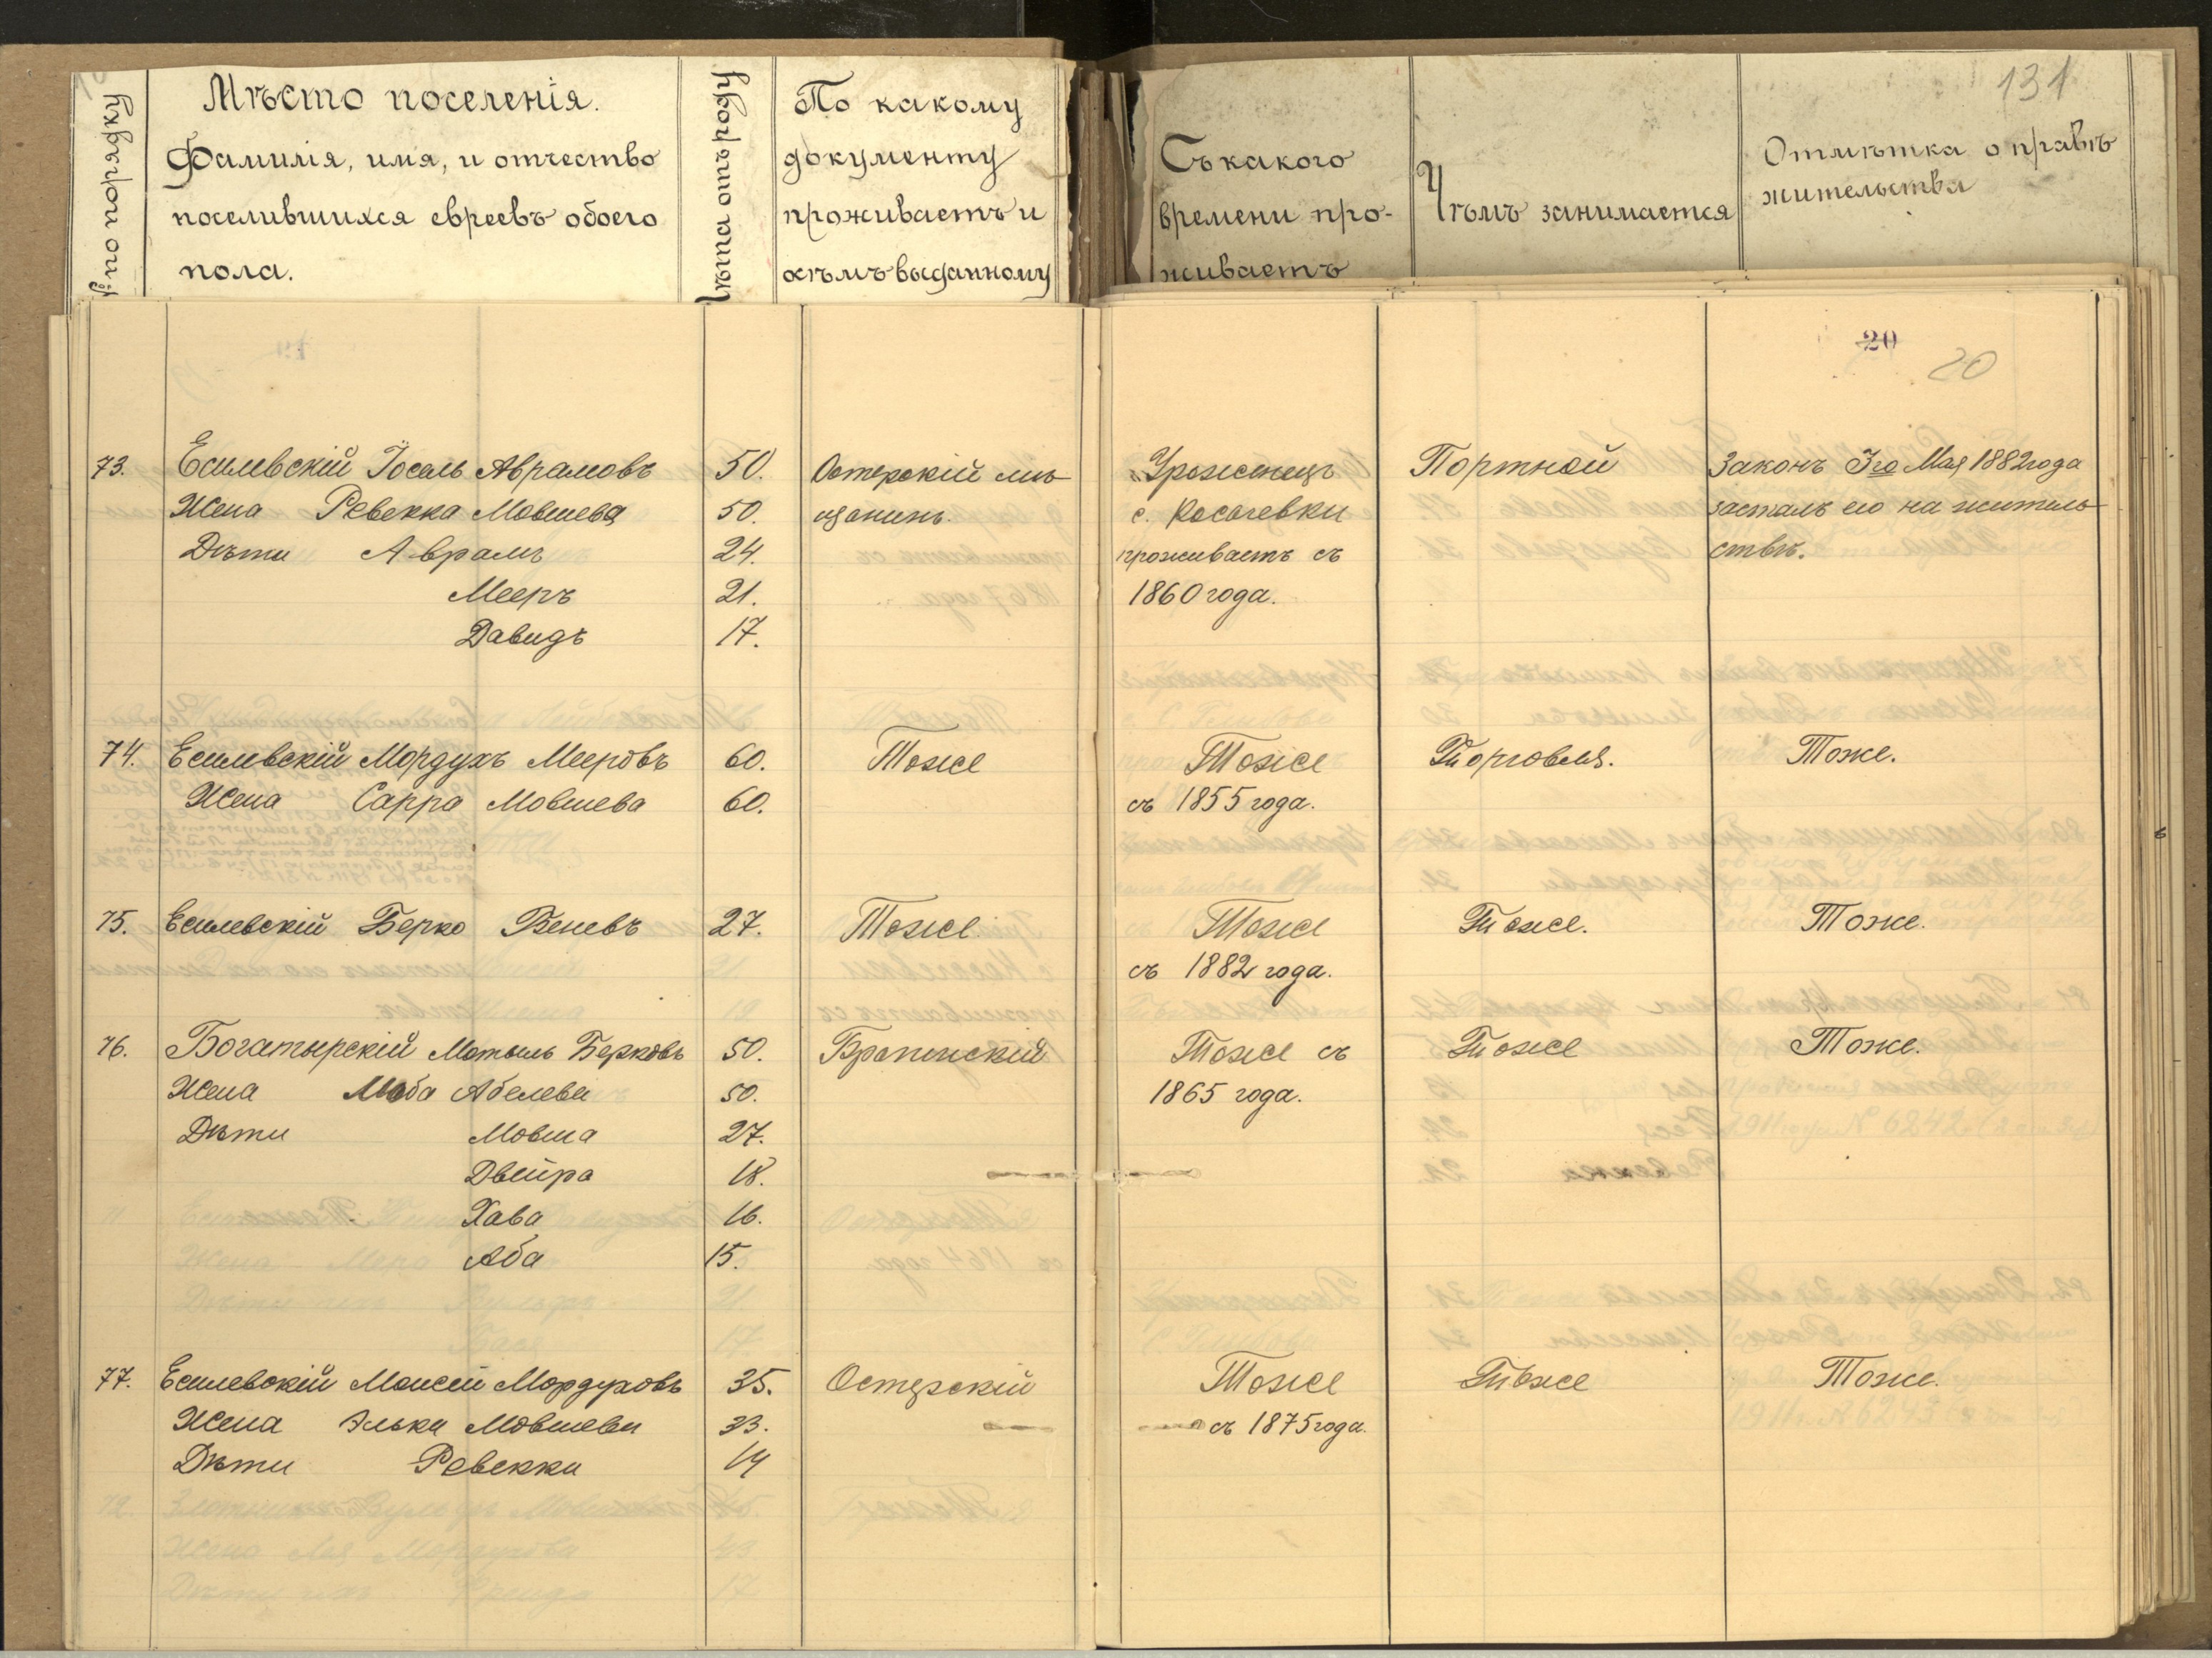 131
№ по порядку
Мѣсто поселенія.
Фамилія, имя, и отчество
поселившихся евреевъ обоего
пола.
Лѣта отъ роду
По какому
документу
проживаетъ и
кѣмъ выданному
Съ какого
времени про-
живаетъ
Чѣмъ занимается
Отмѣтка о правѣ
жительства
20
20
73. Есилевскій Іосель Абрамовъ 50. Остерскій мѣ- Уроженецъ Портной Законъ 3го Мая 1882 года
Жена Ревекка Мовшева 50. щанинъ. с. Косачевки засталъ его на житель-
Дѣти Аврамъ 24. проживаетъ съ ствѣ.
Мееръ 21. 1860 года.
Давидъ 17.
74. Есилевскій Мордухъ Мееровъ 60. Тоже Тоже Торговля. Тоже.
Жена Сарра Мовшева 60. съ 1855 года.
75. Есилевскій Берко Веневъ 27. Тоже Тоже Тоже. Тоже.
съ 1882 года.
76. Богатырскій Мотыль Берковъ 50. Тоже съ Тоже Тоже.
Жена Абелева 50. 1865 года.
Дѣти Мовша 27.
Двейра 18.
Хава 16.
Аба 15.
77. Есилевскій Моисей Мордуховъ 35. Остерскій Тоже Тоже Тоже.
Жена Элька Мовшева 33. съ 1875 года.
Дѣти Ревекка 14